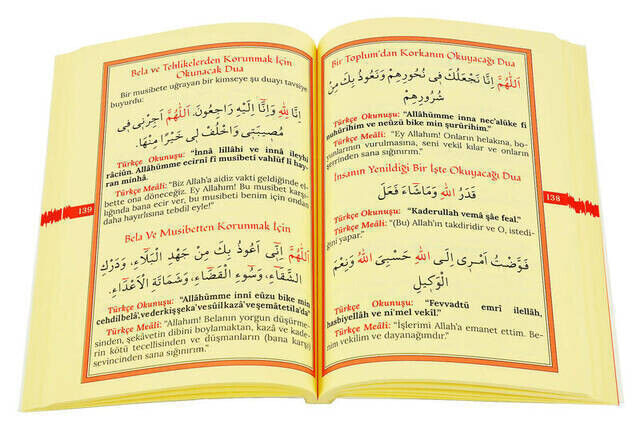 Bela ve Tehlikelerden Korunmak İçin
Okunacak Dua
Bir musibete uğrayan bir kimseye şu duayı tavsiye
buyurdu:
إِنَّا لِلّٰهِ وَإِنَّٓا إِلَيْهِ رَاجِعُونَ. اَللّٰهُمَّ أَجِرْنِي فِي
مُصِيبَتِي وَاخْلُفْ لِي خَيْرًا مِنْهَا.
Türkçe Okunuşu: “İnnâ lillâhi ve innâ ileyhi
râciûn. Allâhümme ecirnî fî musîbetî vahlüf lî hay-
ran minhâ.”
Türkçe Meâli: “Biz Allah’a aidiz vakti geldiğinde el-
bette ona döneceğiz. Ey Allahım! Bu musibet karşı-
lığında bana ecir ver, bu musibeti benim için ondan
daha hayırlısına tebdil eyle!”
Bela Ve Musibetten Korunmak İçin
اَللّٰهُمَّ إِنِّي أَعُوذُ بِكَ مِنْ جَهْدِ الْبَلَٓاءِ، وَدَرَكِ
الشَّقَٓاءِ، وَسُوءِ الْقَضَٓاءِ، وَشَمَاتَةِ الْأَعْدَٓاءِ.
Türkçe Okunuşu: “Allâhümme innî eûzu bike min
cehdilbelâ’, ve derkişşeka’ ve sûilkazâ’ ve şemâtetila’dâ”
Türkçe Meâli: “Allahım! Belanın yorgun düşürme-
sinden, şekâvetin dibini boylamaktan, kazâ ve kade-
rin kötü tecellisinden ve düşmanların (bana karşı)
sevincinden sana sığınırım.”
139
Bir Toplum’dan Korkanın Okuyacağı Dua
اَللّٰهُمَّ إِنَّا نَجْعَلُكَ فِي نُحُورِهِمْ وَنَعُوذُ بِكَ مِنْ
شُرُورِهِمْ
Türkçe Okunuşu: “Allâhümme inna nec’alüke fî
nuhûrihim ve neûzü bike min şurûrihim.”
Türkçe Meâli: “Ey Allahım! Onların helakına, bo-
yunlarının vurulmasına, seni vekil kılar ve onların
şerrinden sana sığınırım.”
İnsanın Yenildiği Bir İşte Okuyacağı Dua
قَدَرُ اللهِ وَمَاشَٓاءَ فَعَلَ
Türkçe Okunuşu: “Kaderullah vemâ şâe feal.”
Türkçe Meâli: “(Bu) Allah’ın takdiridir ve O, istedi-
ğini yapar.”
فَوَّضْتُ أَمْرِي إِلَى اللهِ حَسْبِيَ اللهُ وَنِعْمَ
الْوَكِيلُ
Türkçe Okunuşu: “Fevvadtü emrî ilellâh,
hasbiyellâh ve ni’mel vekîl.”
Türkçe Meâli: “İşlerimi Allah’a emanet ettim. Be-
nim vekilim ve dayanağımdır.”
138